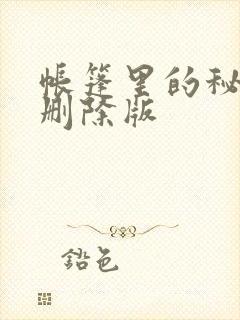 帐篷里的秘
删除版
铅色